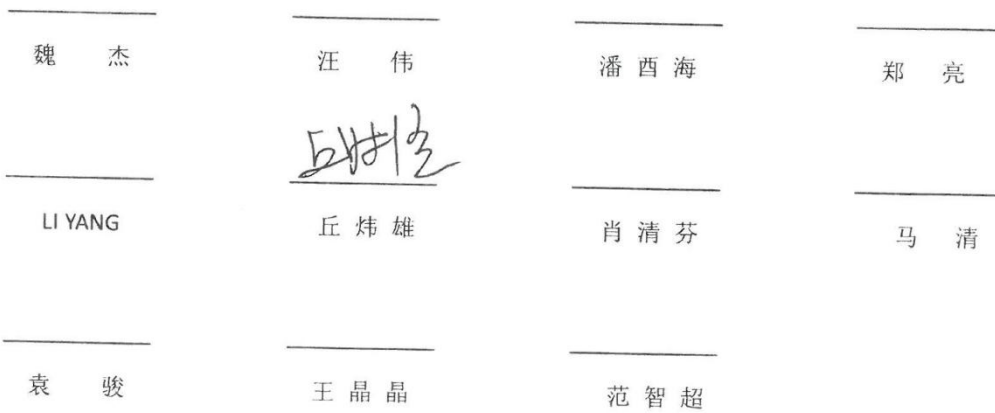 魏 杰 汪 伟 潘酉海 郑 亮
LI YANG 丘炜雄 肖清芬 马 清
袁 骏 王晶晶 范智超